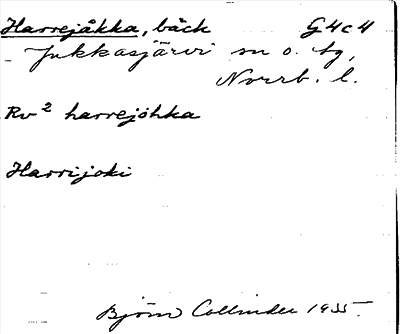 Harrejåkka, bäck G4c4
Jukkasjärvi sn o. tg,
Norrb. l.
Rv² harrejöhka
Harrijoki
Björn Collinder 1935.